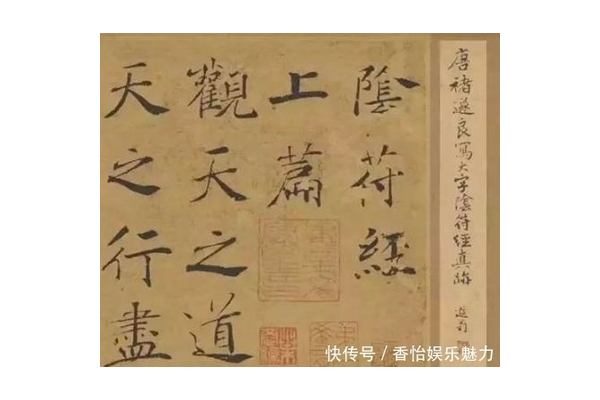 唐褚遂良寫大字陰符經真跡
遐翁
陰符經
上篇
觀天之道
天之行盡
快传号 / 香怡娱乐魅力